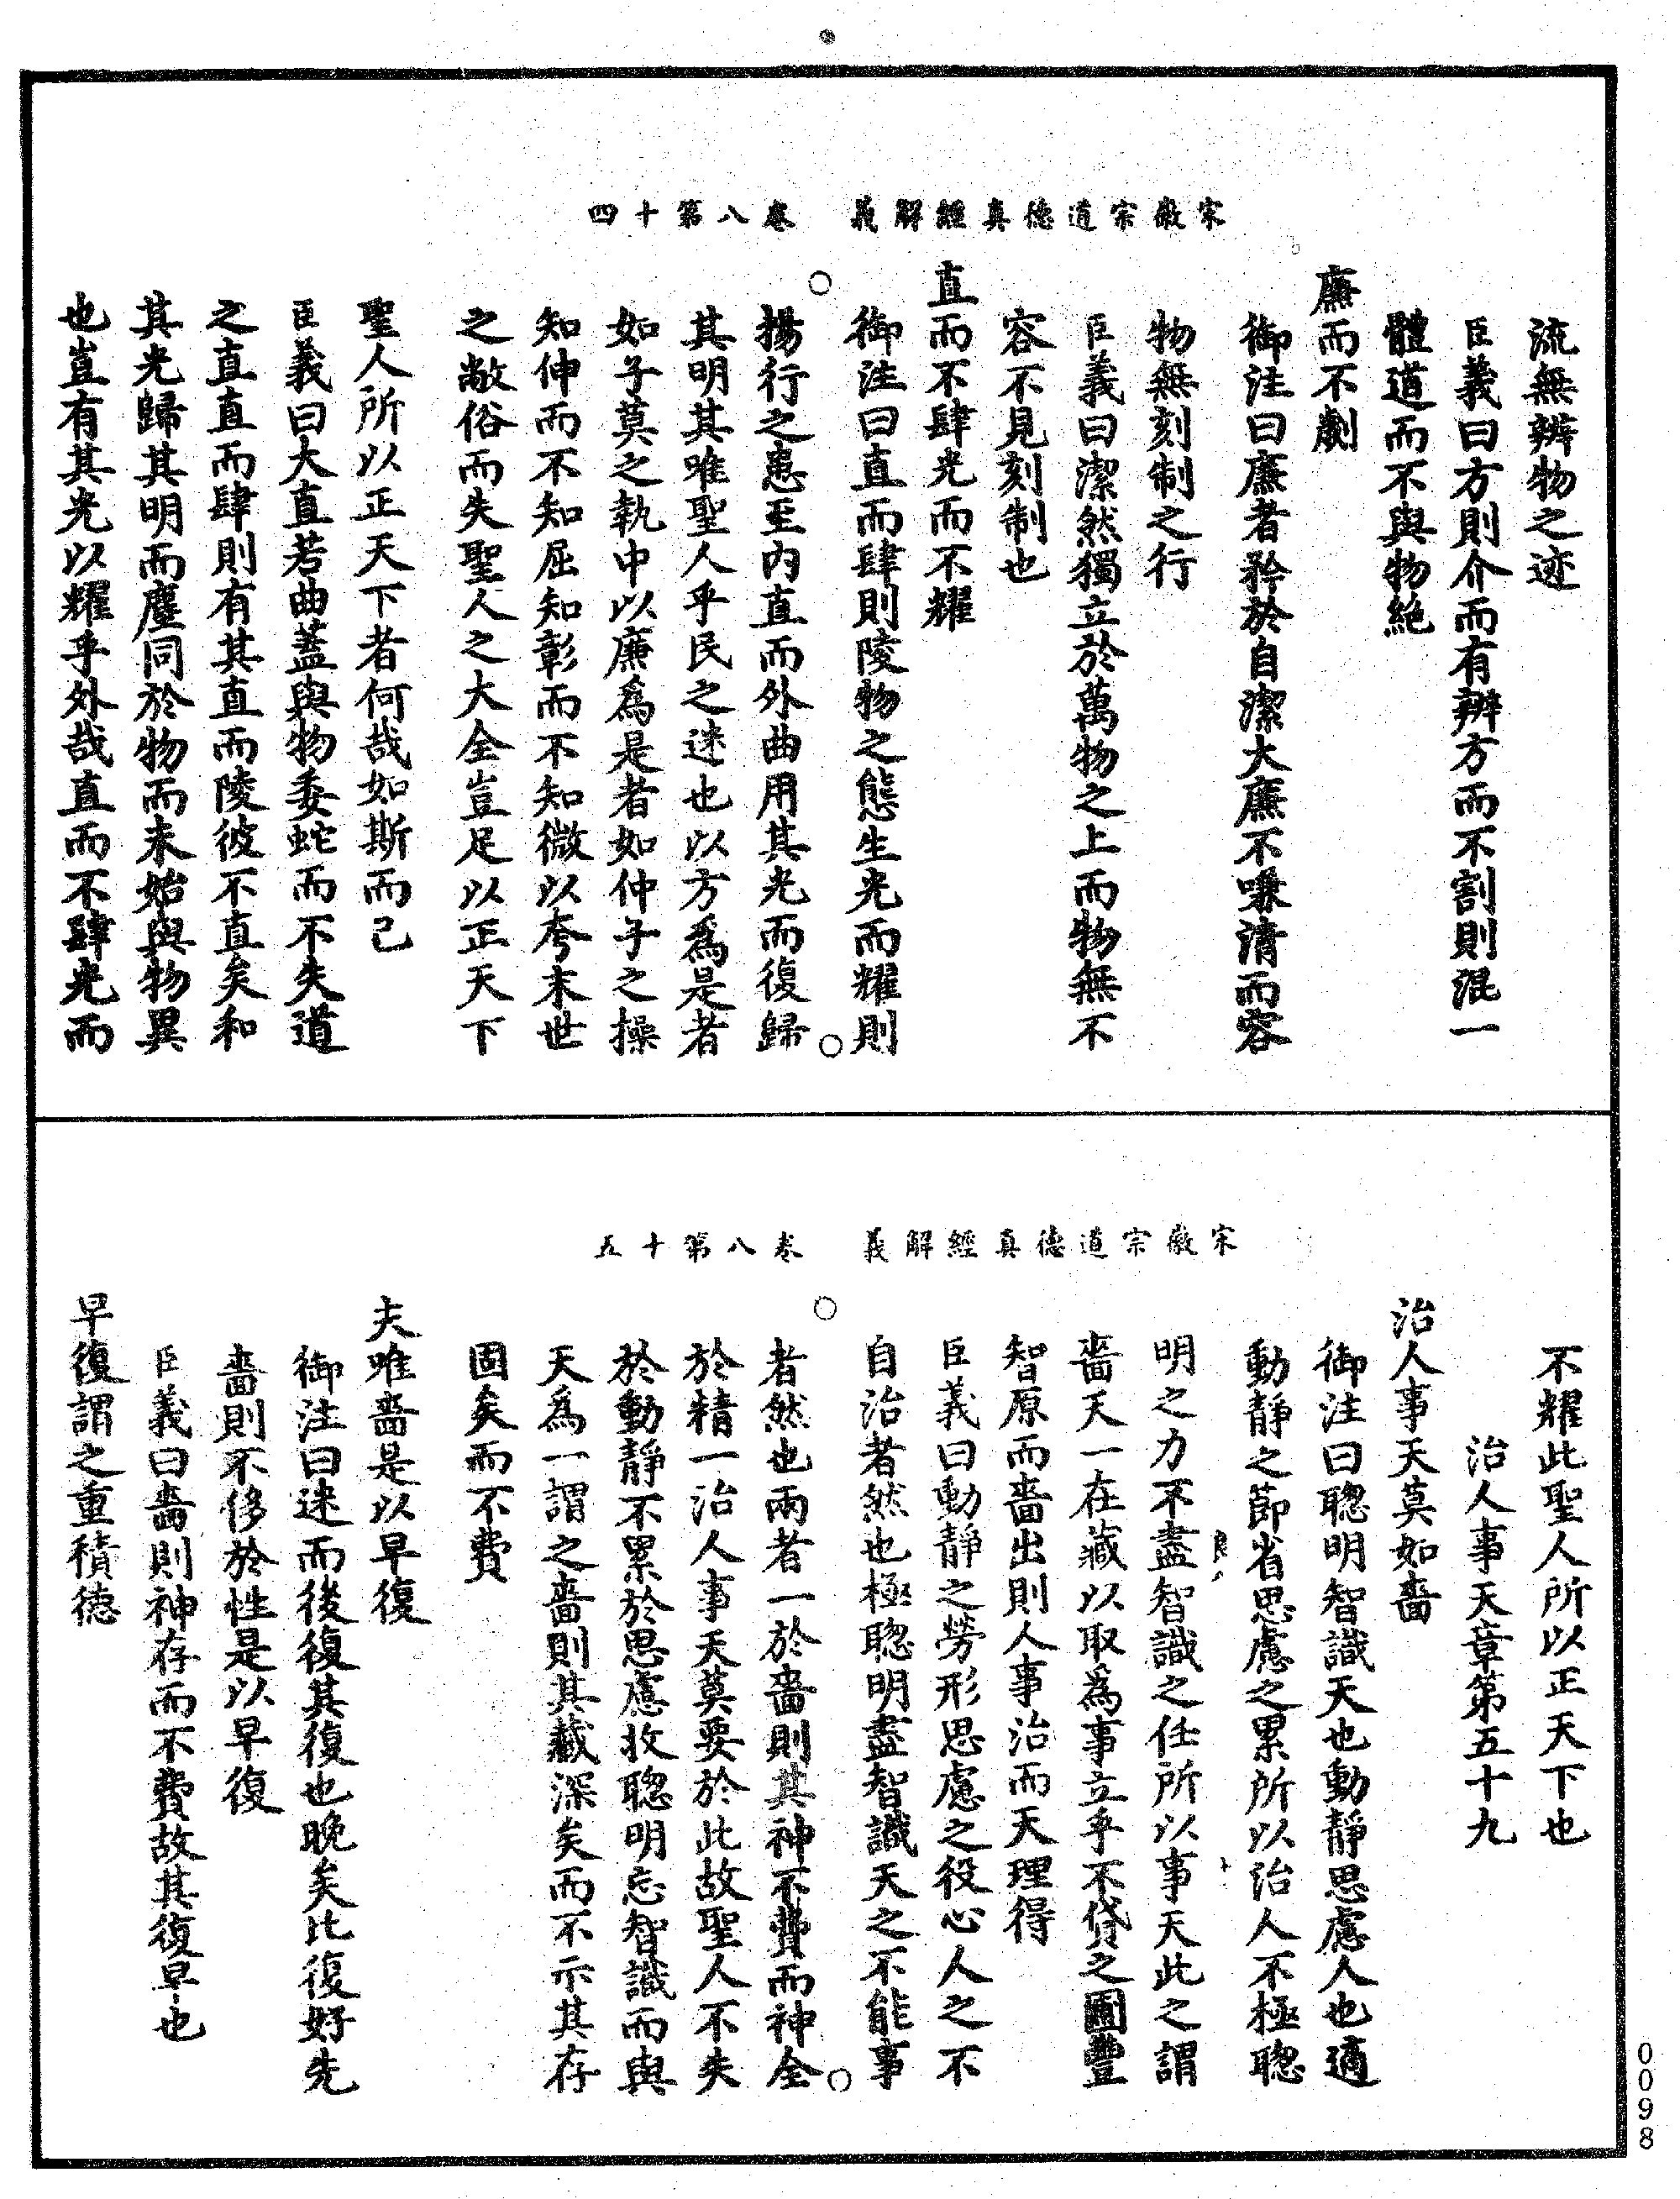 宋徽宗道德真經解義　卷八第十四
流無辨物之迹
臣義曰方則介而有辨方而不割則混一
體道而不與物絕
廉而不劌
御注曰廉者矜於自潔大廉不嗛清而容
物無刻制之行
臣義曰潔然獨立於萬物之上而物無不
容不見刻制也
直而不肆光而不耀
御注曰直而肆則陵物之態生光而耀則
揚行之患至內直而外曲用其光而復歸
其明其唯聖人乎民之迷也以方為是者
如子莫之執中以廉為是者如仲子之操
知伸而不知屈知彰而不知微以夸末世
之敝俗而失聖人之大全豈足以正天下
聖人所以正天下者何哉如斯而已
臣義曰大直若曲蓋與物委蛇而不失道
之直直而肆則有其直而陵彼不直矣和
其光歸其明而塵同於物而未始與物異
也豈有其光以耀乎外哉直而不肆光而
宋徽宗道德真經解義　卷八第十五
不耀此聖人所以正天下也
治人事天章第五十九
治人事天莫如嗇
御注曰聦明智識天也動靜思慮人也適
動靜之節省思慮之累所以治人不極聦
明之力不盡智識之任所以事天此之謂
嗇天一在藏以取為事立乎不貸之圃豐
智原而嗇出則人事治而天理得
臣義曰動靜之勞形思慮之役心人之不
自治者然也極聦明盡智識天之不能事
者然也兩者一於嗇則其神不費而神全
於精一治人事天莫要於此故聖人不失
於動靜不累於思慮收聦明忘智識而與
天為一謂之嗇則其藏深矣而不示其存
固矣而不費
夫唯嗇是以早復
御注曰迷而後復其復也晚矣比復好先
嗇則不侈於性是以早復
臣義曰嗇則神存而不費故其復早也
早復謂之重積德
0098